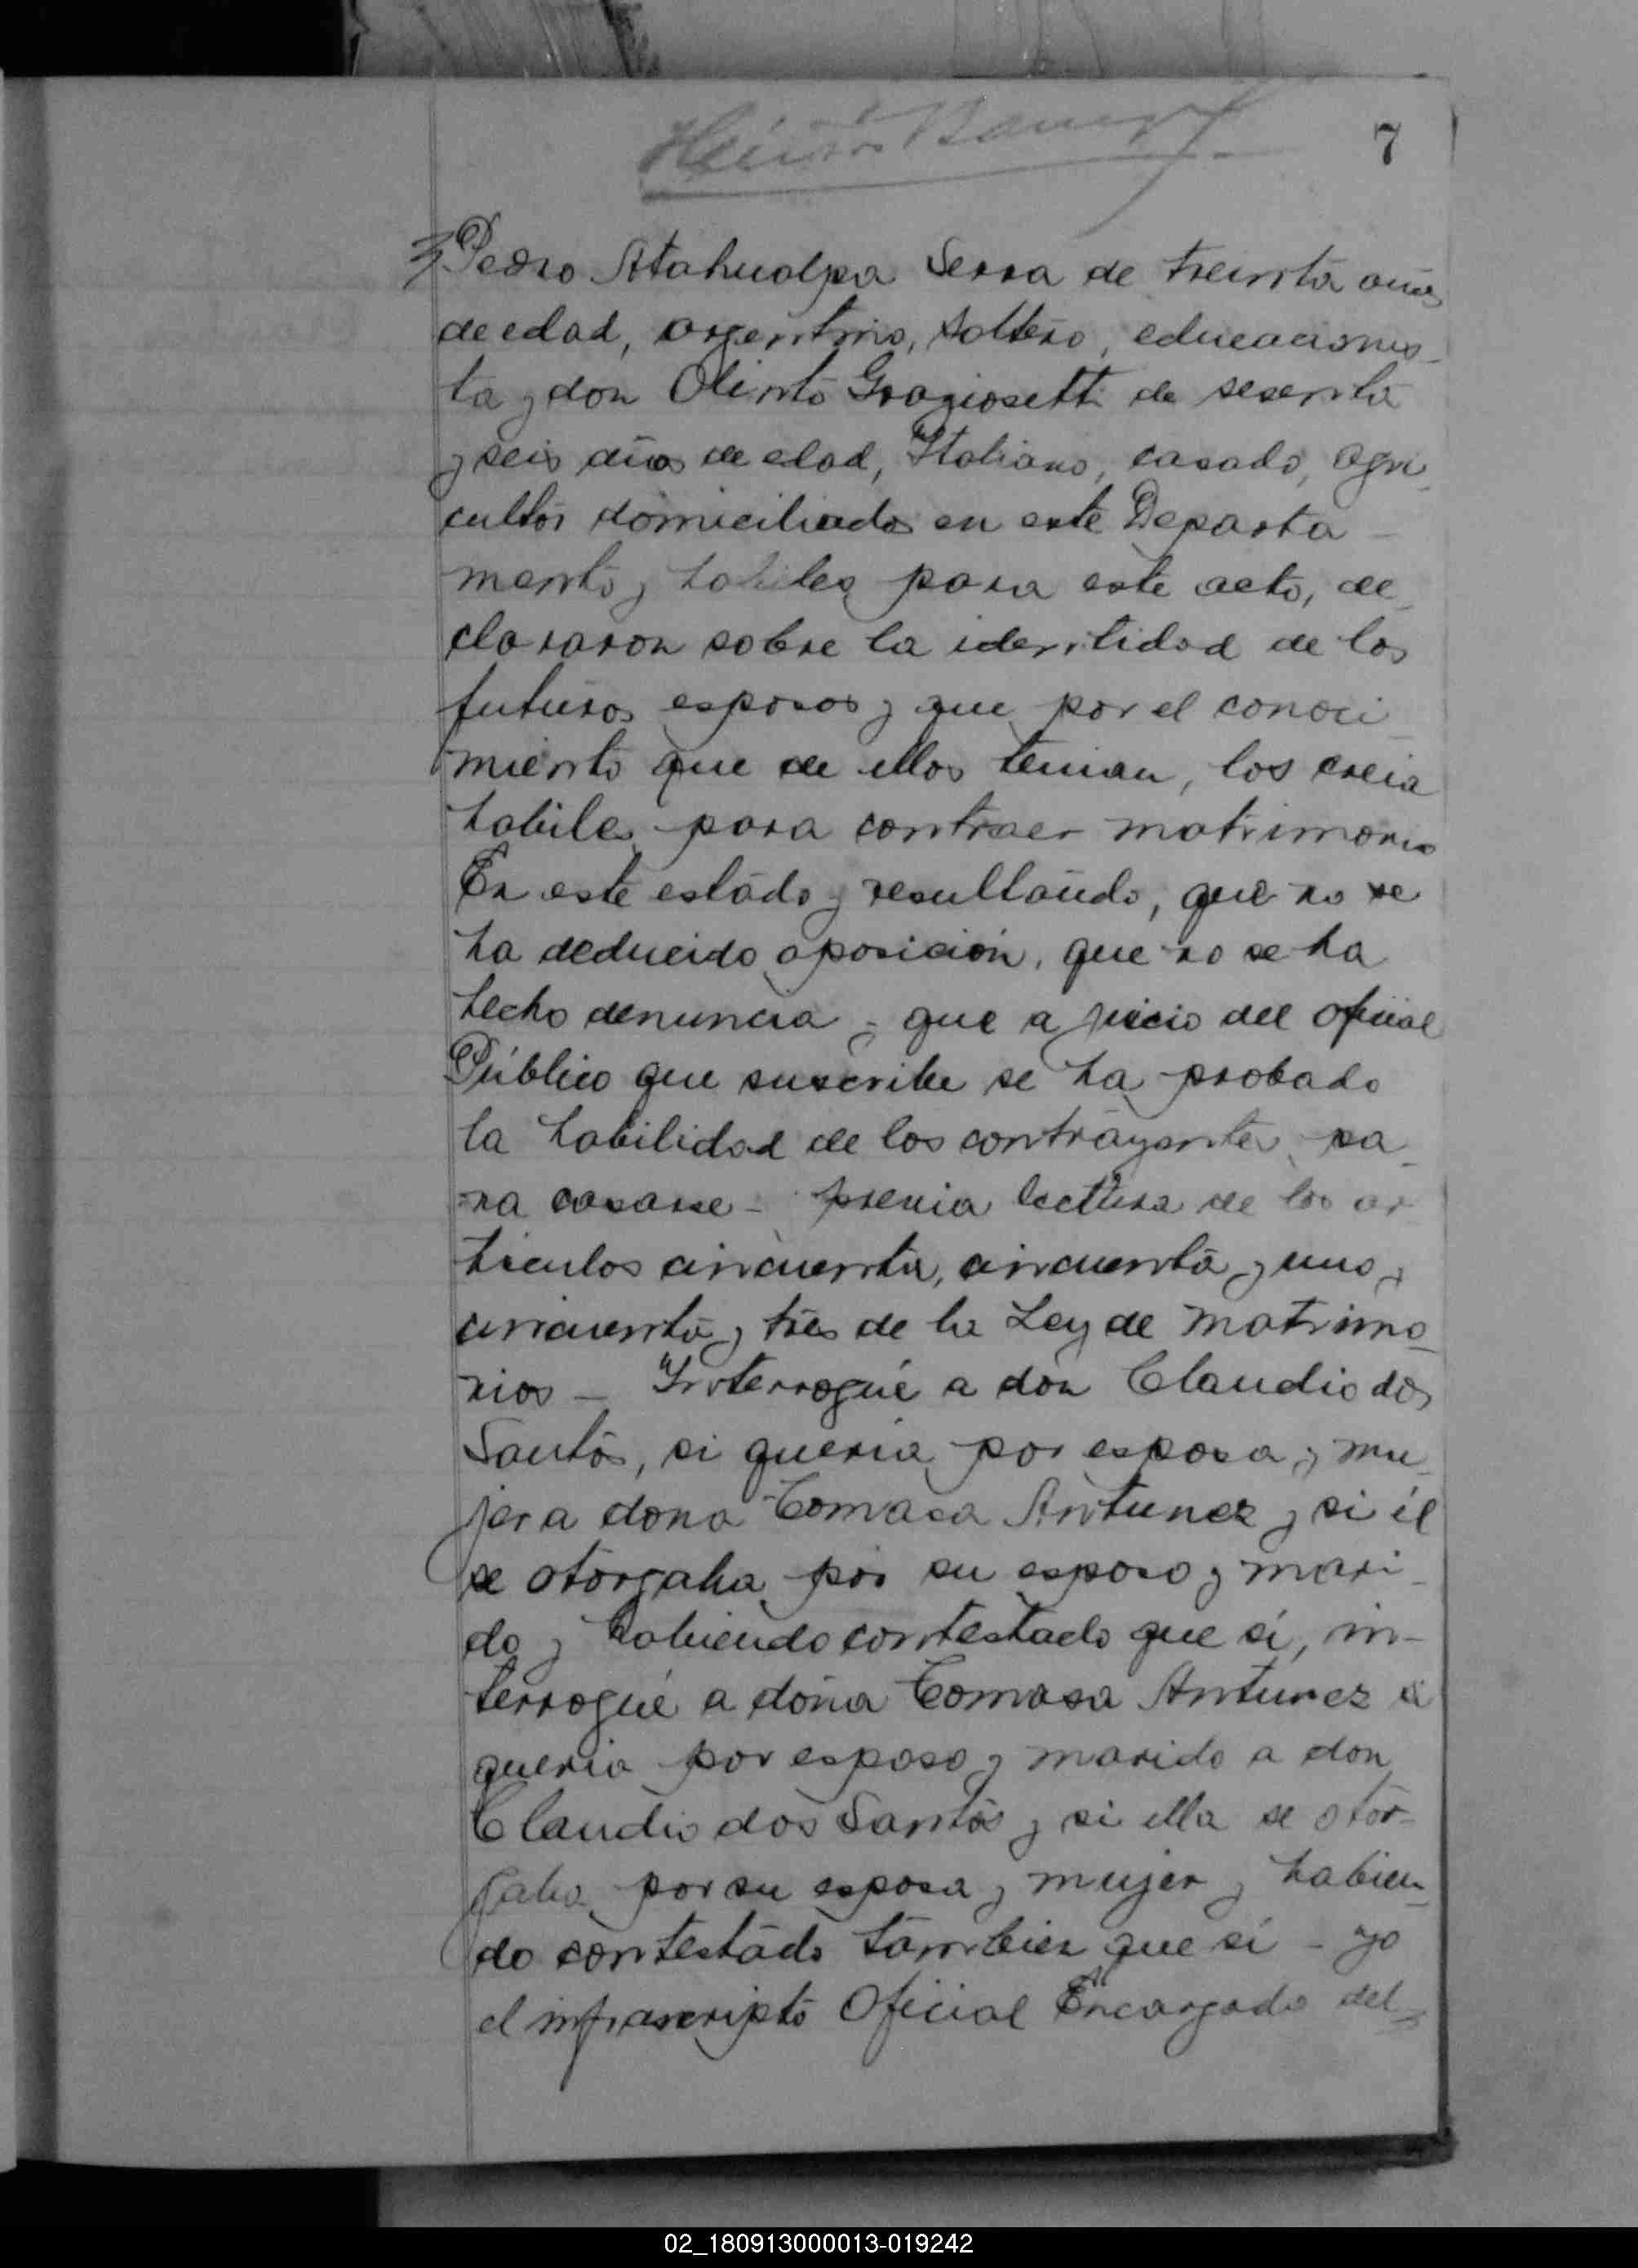 7
Pedro Atahualpa Serra de treinta años
de edad, argentino, soltero, educacionis-
ta y don Olinto Graziosetti de sesenta
y seis años de edad, Italiano, casado, agri-
cultor domiciliados en este Departa-
mento y habiles para este acto, de-
clararon sobre la identidad de los
futuros esposos y que por el conoci-
miento que de ellos tenian, los creia
habiles para contraer matrimonio
En este estado y resultando, que no se
ha deducido oposición, que no se ha
hecho denuncia y que a juicio del oficial
Público que suscribe se ha probado
la habilidad de los contrayentes pa-
ra casarse - previa lectura de los ar-
ticulos cincuenta, cincuenta y uno y
cincuenta y tres de la Ley de Matrimo-
nios - Interrogué a don Claudio dos
Santos, si queria por esposa y mu-
jer a dona Tomasa Antunez y si él
se otorgaba por su esposo y mari-
do y habiendo contestado que sí, in-
terrogué a doña Tomasa Antunez si
queria por esposo y marido a don
Claudio dos Santos y si ella se otor-
gaba por su esposa y mujer y habien-
do contestado tambien que sí - yo
el infrascripto Oficial Encargado del
02_180913000013-019242